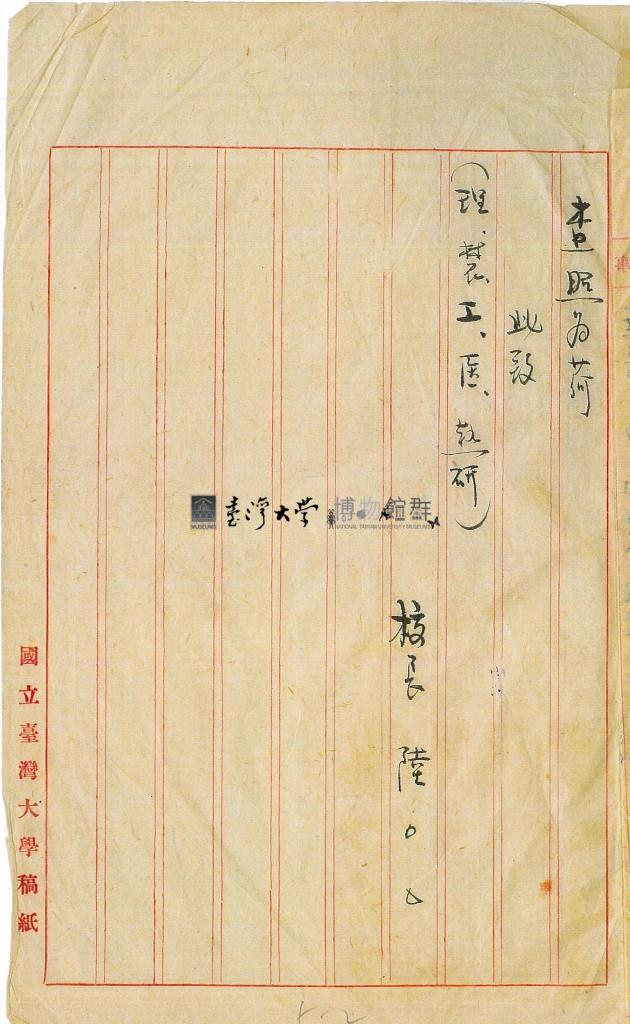 查照為荷
此致
(理、農、工、医、熱研)
校長 陸○○
國立臺灣大學稿紙
臺灣大學 博物館群
MUSEUMS
NATIONAL TAIWAN UNIVERSITY MUSEUMS